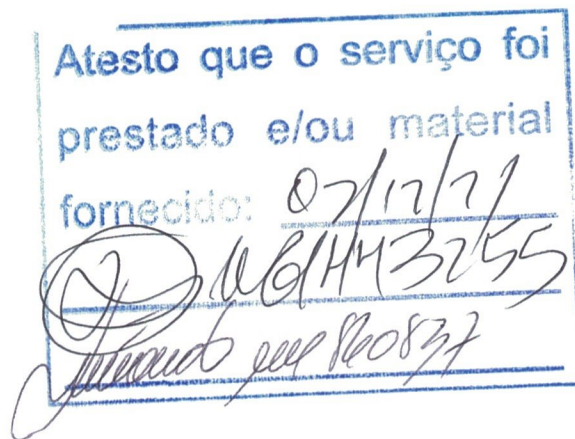 Atesto que o serviço foi
prestado e/ou material
fornecido: 07/12/21
443255
840837